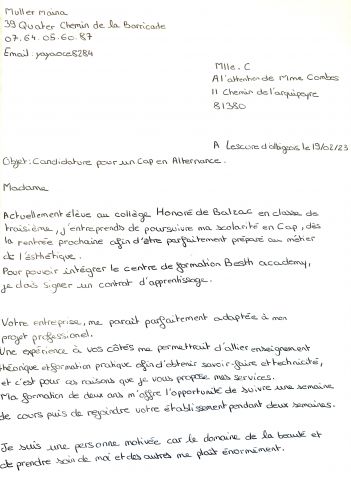 Muller maina
39 Quater Chemin de la Barricade
07.64.05.60.87
Email: yayaoce8284
Mlle. C
A l'attention de Mme Combes
11 Chemin de l'arquipeyre
81380
A Lescure d'albigeois le 19/02/23
Objet: Candidature pour un Cap en Alternance.
Madame
Actuellement élève au collège Honoré de Balzac en classe de
troisième, j'entreprends de poursuivre ma scolarité en Cap, dès
la rentrée prochaine afin d'être parfaitement préparé au métier
de l'esthétique.
Pour pouvoir intégrer le centre de formation Besth academy,
je dois signer un contrat d'apprentissage.
Votre entreprise, me parait parfaitement adaptée à mon
projet professionel.
Une expérience à vos côtés me permettrait d'allier enseignement
théorique et formation pratique afin d'obtenir savoir-faire et technicité,
et c'est pour ces raisons que je vous propose mes services.
Ma formation de deux ans m'offre l'opportunité de suivre une semaine
de cours puis de rejoindre votre établissement pendant deux semaines.
Je suis une personne motivée car le domaine de la beauté et
de prendre soin de moi et des autres me plait énormément.